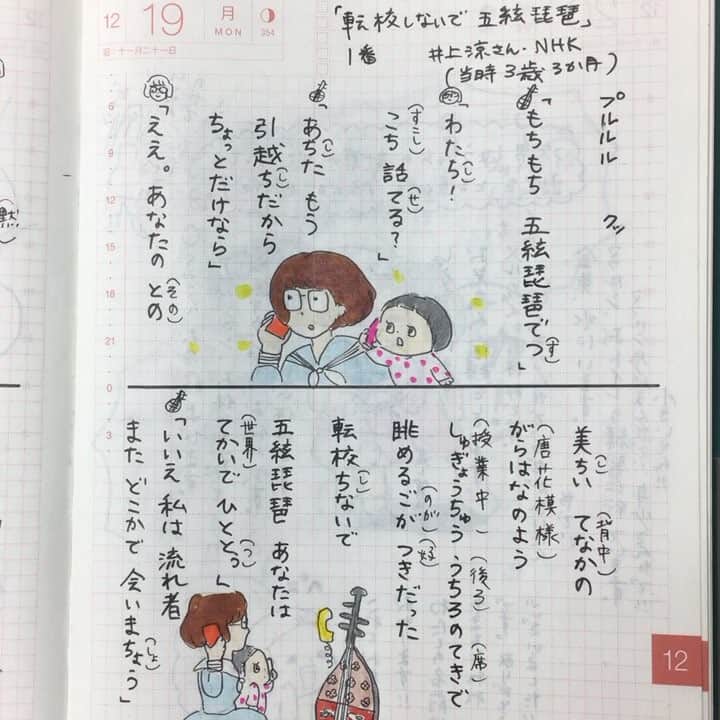 12 19 月 MON 354
旧：十一月二十一日
「転校しないで 五絃琵琶」
1番 井上涼さん・NHK
(当時3歳3か月)
プルルル クッ
「もちもち 五絃琵琶でつ(す)」
「わたち(し)!
(すこし)
こち 話てる(せ)?」
「あぢ(し)た もう
引越ぢ(し)だから
ちょっとだけなら」
「ええ。あなたの との(その)
美ちい(し) てなかの(背中)
(唐花模様)
がらはなのよう
(授業中) (後ろ) (席)
しゅぎょうちゅう うちろのてきで
眺めるごが(のが) つきだった(好)
転校ちないで(し)
五絃琵琶 あなたは
(世界)
てかいで ひととっ(つ)」
「いいえ 私は 流れ者
また どこかで 会いまちょう(しょ)」
6
9
12
15
18
21
0
3
12
黙